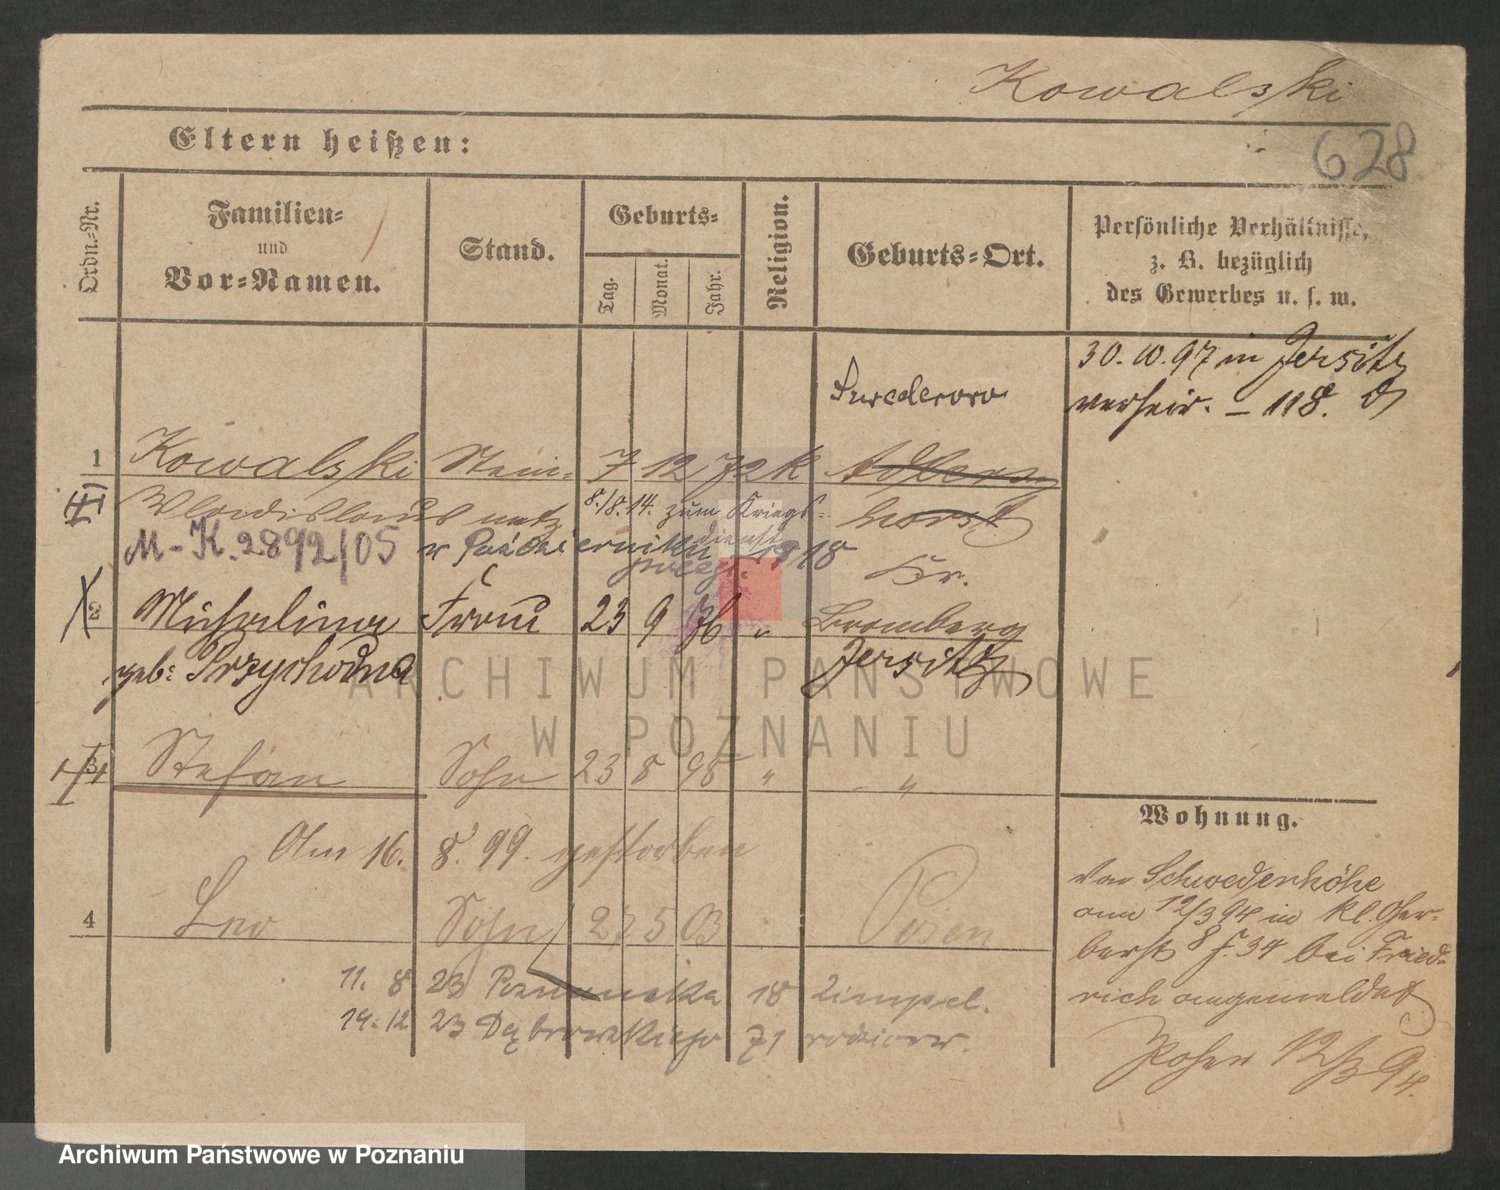 Kowalski
628
Eltern heißen:
Ordn.=Nr.
Familien=
und
Vor=Namen.
Stand.
Geburts=
Tag.
Monat.
Jahr.
Religion.
Geburts=Ort.
Persönliche Verhältnisse,
z. B. bezüglich
des Gewerbes u. s. w.
30.10.97 in Jersitz
verheir. – 118.
1 Kowalski Stein= 7 12 72 k Adlers
Wladislaus metz 8./8.14. zum Kriegs= horst
dienst
M-K. 2892/05 w Październiku 1918
Kr.
2 Michalina Frau 23 9 76 " Bromberg
geb: Przychodna Jersitz
3 Stefan Sohn 23 8 98 " "
Am 16. 8. 99. gestorben
4 Leo Sohn 27 5 03 Posen
11. 8 23 Poznańska 18 Limpel.
14.12 23 Dąbrowskiego 71 rodziców.
Wohnung.
Von Schwedenhöhe
am 12/3 94 in kl. Ger=
berst 8 f. 34 bei Fried=
rich angemeldet
Posen 12/3 94.
ARCHIWUM PAŃSTWOWE
W POZNANIU
Archiwum Państwowe w Poznaniu